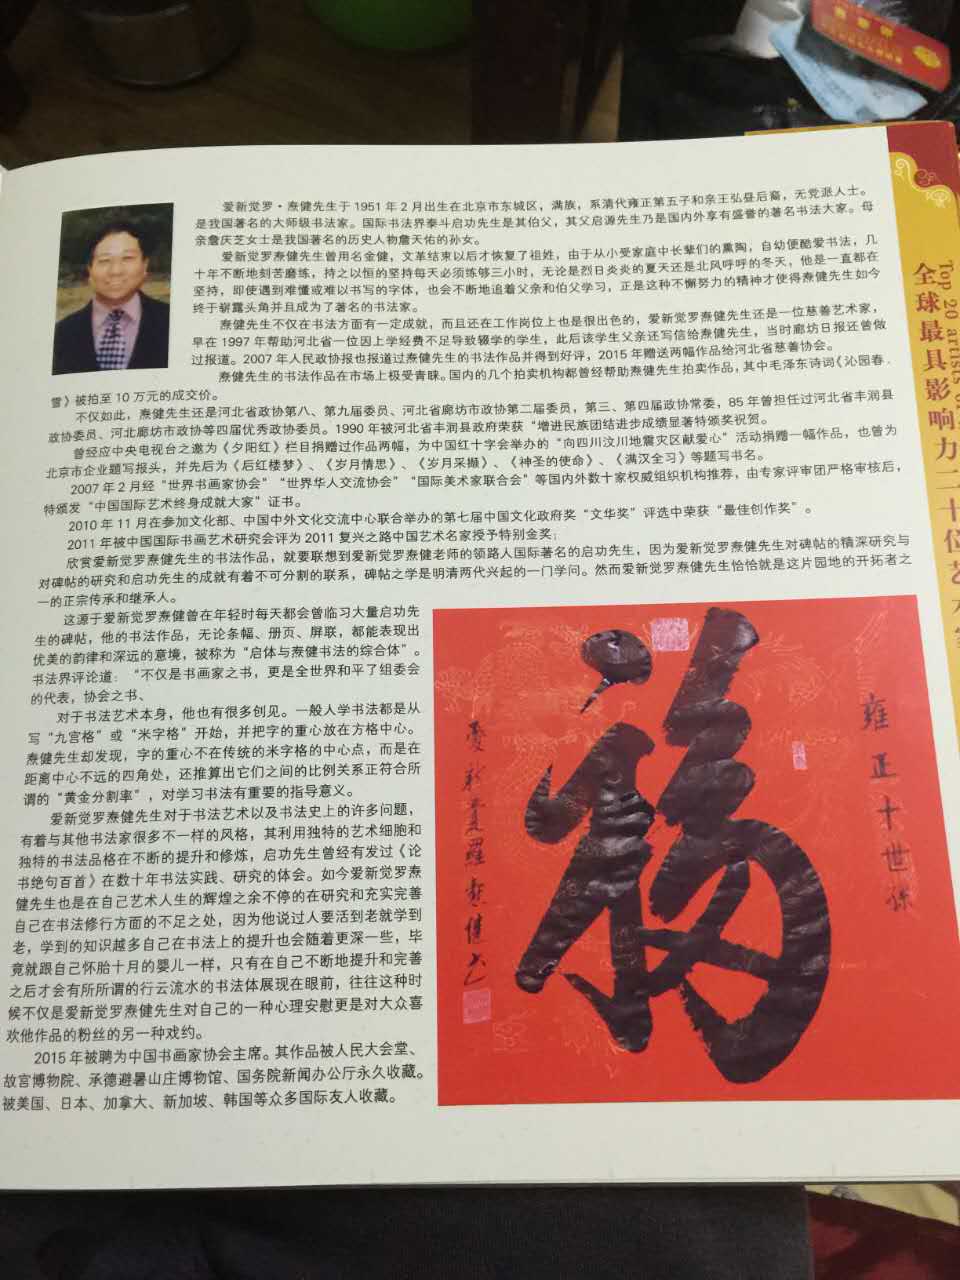 爱新觉罗·焘健先生于1951年2月出生在北京市东城区，满族，系清代雍正第五子和亲王弘昼后裔，无党派人士。
是我国著名的大师级书法家。国际书法界泰斗启功先生是其伯父，其父启源先生乃是国内外享有盛誉的著名书法大家。母
亲詹庆芝女士是我国著名的历史人物詹天佑的孙女。
爱新觉罗焘健先生曾用名金健，文革结束以后才恢复了祖姓，由于从小受家庭中长辈们的熏陶，自幼便酷爱书法，几
十年不断地刻苦磨练，持之以恒的坚持每天必须练够三小时，无论是烈日炎炎的夏天还是北风呼呼的冬天，他是一直都在
坚持，即使遇到难懂或难以书写的字体，也会不断地追着父亲和伯父学习，正是这种不懈努力的精神才使得焘健先生如今
终于崭露头角并且成为了著名的书法家。
焘健先生不仅在书法方面有一定成就，而且还在工作岗位上也是很出色的，爱新觉罗焘健先生还是一位慈善艺术家，
早在1997年帮助河北省一位因上学经费不足导致辍学的学生，此后该学生父亲还写信给焘健先生，当时廊坊日报还曾做
过报道。2007年人民政协报也报道过焘健先生的书法作品并得到好评，2015年赠送两幅作品给河北省慈善协会。
焘健先生的书法作品在市场上极受青睐。国内的几个拍卖机构都曾经帮助焘健先生拍卖作品，其中毛泽东诗词《沁园春．
雪》被拍至10万元的成交价。
不仅如此，焘健先生还是河北省政协第八、第九届委员、河北省廊坊市政协第二届委员，第三、第四届政协常委，85年曾担任过河北省丰润县
政协委员、河北廊坊市政协等四届优秀政协委员。1990年被河北省丰润县政府荣获“增进民族团结进步成绩显著特颁奖祝贺。
曾经应中央电视台之邀为《夕阳红》栏目捐赠过作品两幅，为中国红十字会举办的“向四川汶川地震灾区献爱心”活动捐赠一幅作品，也曾为
北京市企业题写报头，并先后为《后红楼梦》、《岁月情思》、《岁月采撷》、《神圣的使命》、《满汉全习》等题写书名。
2007年2月经“世界书画家协会”“世界华人交流协会”“国际美术家联合会”等国内外数十家权威组织机构推荐，由专家评审团严格审核后，
特颁发“中国国际艺术终身成就大家”证书。
2010年11月在参加文化部、中国中外文化交流中心联合举办的第七届中国文化政府奖“文华奖”评选中荣获“最佳创作奖”。
2011年被中国国际书画艺术研究会评为2011复兴之路中国艺术名家授予特别金奖；
欣赏爱新觉罗焘健先生的书法作品，就要联想到爱新觉罗焘健老师的领路人国际著名的启功先生，因为爱新觉罗焘健先生对碑帖的精深研究与
对碑帖的研究和启功先生的成就有着不可分割的联系，碑帖之学是明清两代兴起的一门学问。然而爱新觉罗焘健先生恰恰就是这片园地的开拓者之
一的正宗传承和继承人。
这源于爱新觉罗焘健曾在年轻时每天都会曾临习大量启功先
生的碑帖，他的书法作品，无论条幅、册页、屏联，都能表现出
优美的韵律和深远的意境，被称为“启体与焘健书法的综合体”。
书法界评论道：“不仅是书画家之书，更是全世界和平了组委会
的代表，协会之书、
对于书法艺术本身，他也有很多创见。一般人学书法都是从
写“九宫格”或“米字格”开始，并把字的重心放在方格中心。
焘健先生却发现，字的重心不在传统的米字格的中心点，而是在
距离中心不远的四角处，还推算出它们之间的比例关系正符合所
谓的“黄金分割率”，对学习书法有重要的指导意义。
爱新觉罗焘健先生对于书法艺术以及书法史上的许多问题，
有着与其他书法家很多不一样的风格，其利用独特的艺术细胞和
独特的书法品格在不断的提升和修炼，启功先生曾经有发过《论
书绝句百首》在数十年书法实践、研究的体会。如今爱新觉罗焘
健先生也是在自己艺术人生的辉煌之余不停的在研究和充实完善
自己在书法修行方面的不足之处，因为他说过人要活到老就学到
老，学到的知识越多自己在书法上的提升也会随着更深一些，毕
竟就跟自己怀胎十月的婴儿一样，只有在自己不断地提升和完善
之后才会有所所谓的行云流水的书法体展现在眼前，往往这种时
候不仅是爱新觉罗焘健先生对自己的一种心理安慰更是对大众喜
欢他作品的粉丝的另一种戏约。
2015年被聘为中国书画家协会主席。其作品被人民大会堂、
故宫博物院、承德避暑山庄博物馆、国务院新闻办公厅永久收藏。
被美国、日本、加拿大、新加坡、韩国等众多国际友人收藏。
雍正十世孫
福
愛新覺羅焘健
Top 20 artists
全球最具影响力二十位艺